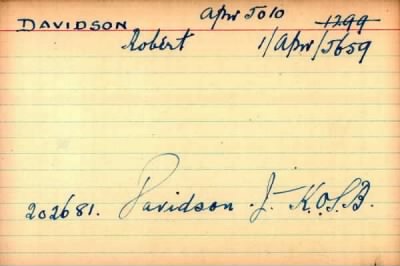 DAVIDSON apw 5010 1299
Robert 1/apw/5659
202681. Davidson. J. K.O.S.B.